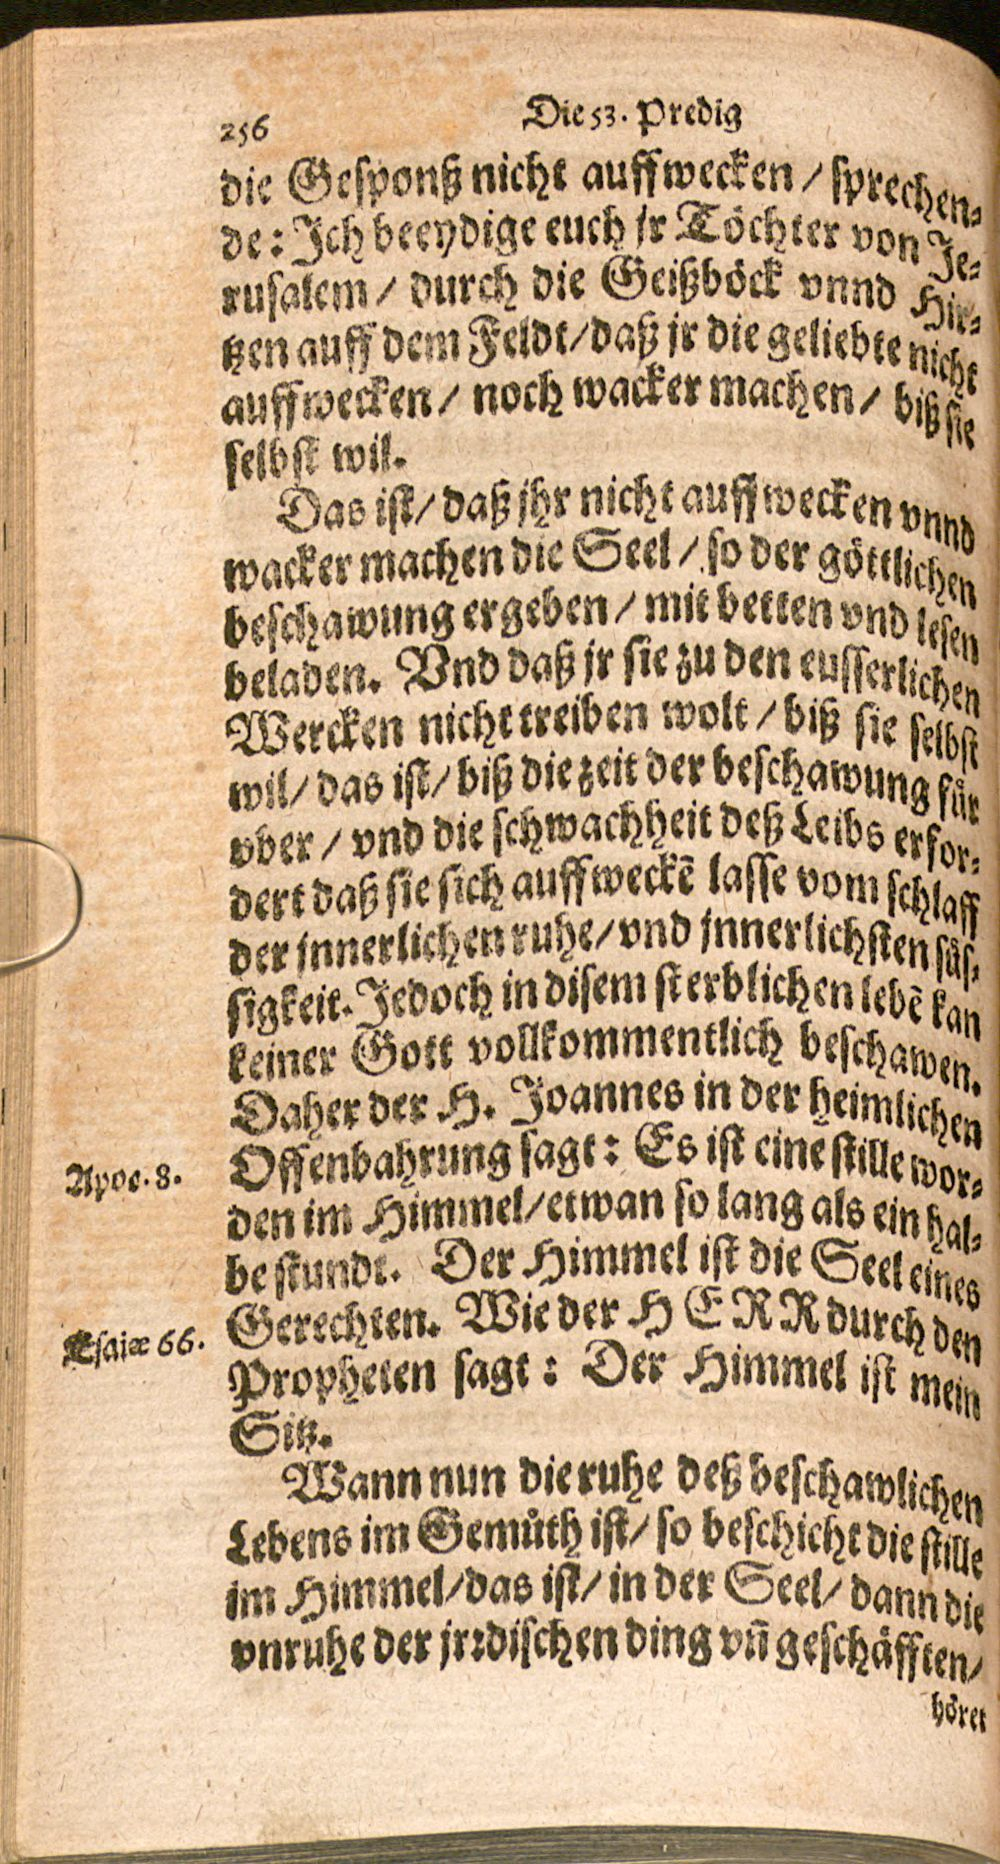 256
Die 53. Predig
die Gesponß nicht auffwecken / sprechen-
de: Ich beeydige euch jr Töchter von Je-
rusalem / durch die Geißböck vnnd Hir-
tzen auff dem Feldt/ daß jr die geliebte nicht
auffwecken / noch wacker machen / biß sie
selbst wil.
Das ist/ daß jhr nicht auffwecken vnnd
wacker machen die Seel / so der göttlichen
beschawung ergeben / mit betten vnd lesen
beladen. Vnd daß jr sie zu den eusserlichen
Wercken nicht treiben wolt / biß sie selbst
wil/ das ist/ biß die zeit der beschawung für
vber / vnd die schwachheit deß Leibs erfor-
dert daß sie sich auffweckē lasse vom schlaff
der jnnerlichen ruhe/ vnd jnnerlichsten süs-
sigkeit. Jedoch in disem sterblichen lebē kan
keiner Gott vollkommentlich beschawen.
Daher der H. Joannes in der heimlichen
Apoc. 8.
Offenbahrung sagt: Es ist eine stille wor-
den im Himmel/ etwan so lang als ein hal-
be stundt. Der Himmel ist die Seel eines
Esaiæ 66.
Gerechten. Wie der HERR durch den
Propheten sagt: Der Himmel ist mein
Sitz.
Wann nun die ruhe deß beschawlichen
Lebens im Gemůth ist/ so beschicht die stille
im Himmel/ das ist/ in der Seel/ dann die
vnruhe der jrrdischen ding vn̄ geschäfften/
höret